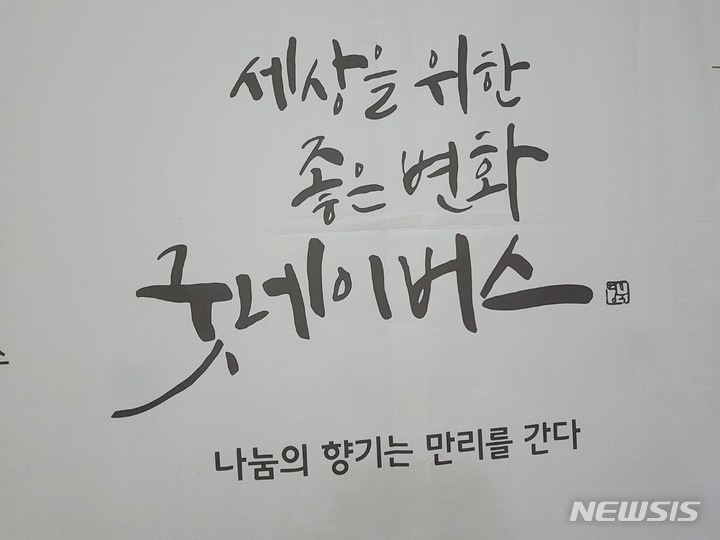 세상을 위한
좋은 변화
굿네이버스
나눔의 향기는 만리를 간다
NEWSIS